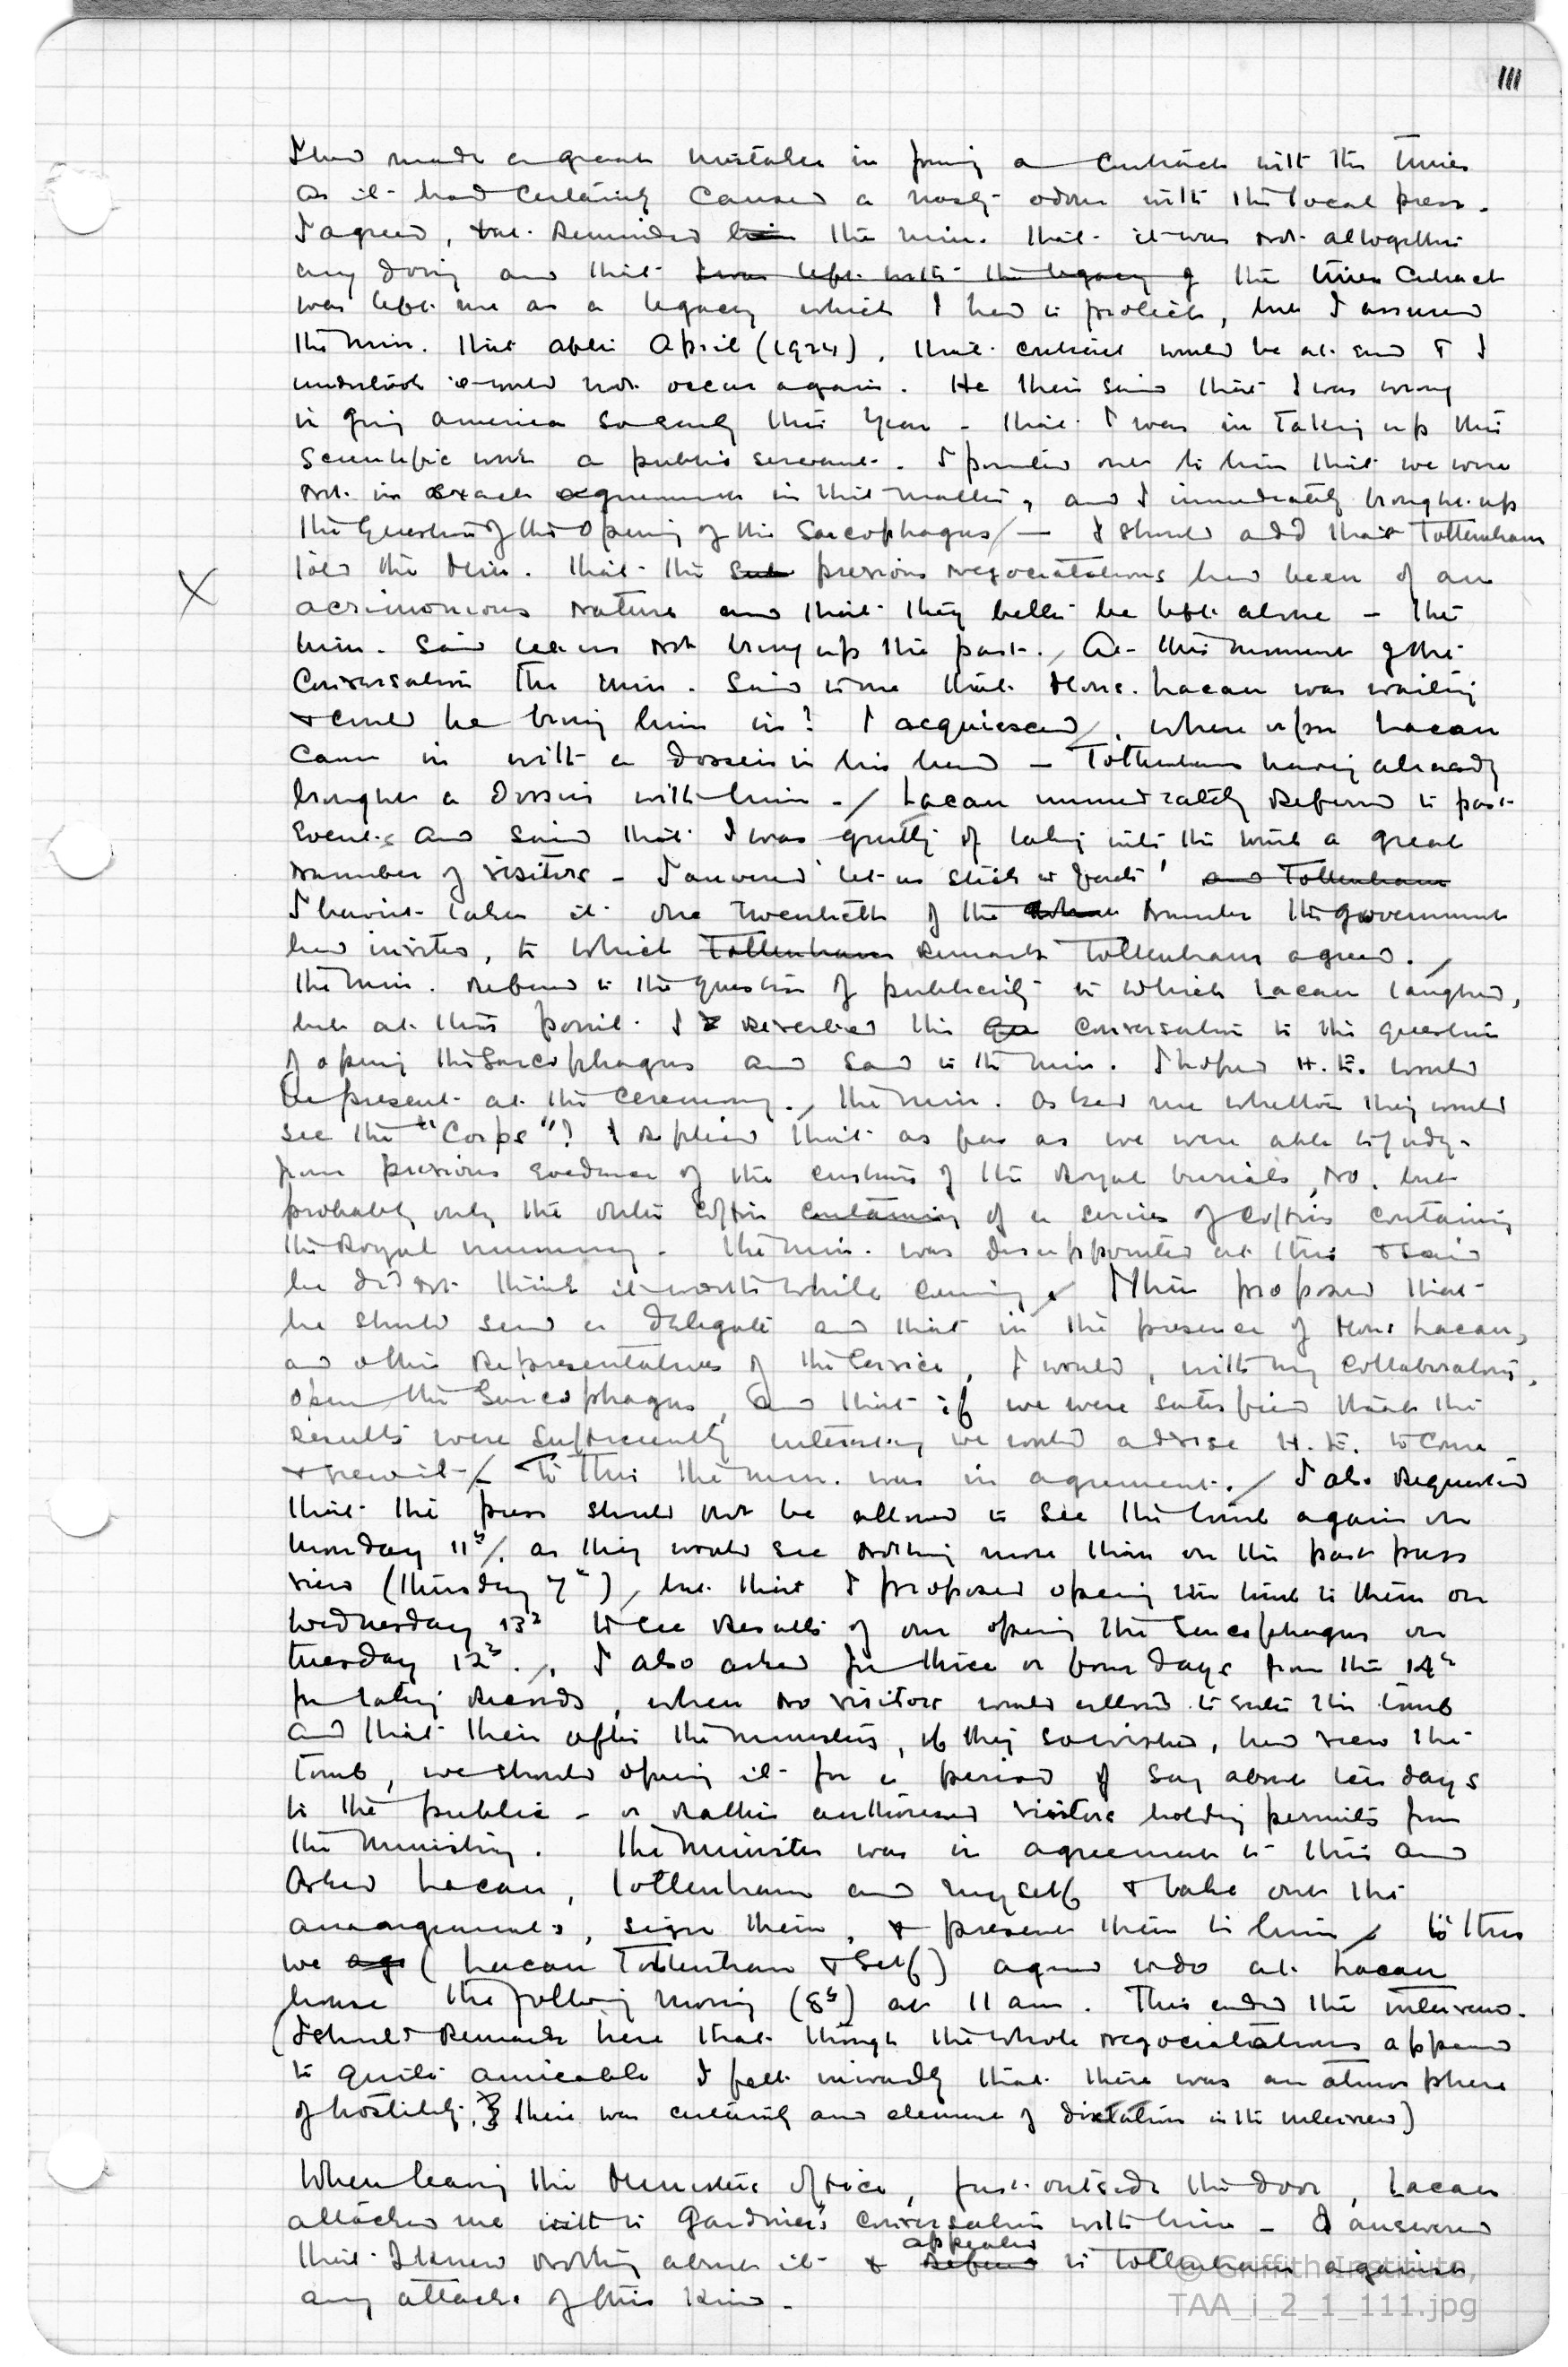 111
I had made a great mistake in forming a contract with the Times
as it had certainly caused a nasty odour with the local press.
I agreed, but reminded him the Min. that it was not altogether
my doing and that I was left with the legacy of the Times Contract
was left me as a legacy which I had to protect, but I assured
the Min. that after April (1924), that contract would be at end & I
understood it would not occur again. He then said that I was wrong
in going America so early this year - that I was in taking up this
Scientific work a public servant. I pointed out to him that we were
not in exact agreement in that matter, and I immediately brought up
the question of the opening of the Sarcophagus/ — I should add that Tottenham
X told the Min. that the previous negociatations had been of an
acrimonious nature and that they better be left alone - the
Min. said let us not bring up the past./ At this moment of the
Conversation the Min. said to me that Mons. Lacau was waiting
& could he bring him in? I acquiesced/, where upon Lacau
came in with a dossier in his hand - Tottenham having already
brought a Dossier with him -/ Lacau immediately referred to past
Events and said that I was guilty of taking into the tomb a great
number of visitors - I answered 'let us stick to facts' and Tottenham
I having taken it one twentieth of the number the government
had invited, to which Tottenham remark Tottenham agreed./
The Min. refered to the question of publicity to which Lacau laughed,
but at this point I reverted the conversation to the question
of opening the Sarcophagus and said to the Min. I hoped H.E. would
be present at the ceremony./ The Min. asked me whether they would
see the "Corps"? I replied that as far as we were able to judge
from previous evidence of the customs of the Royal burials, no, but
probably only the outer coffin containing of a series of coffins containing
the Royal mummy. The Min. was disappointed at this & said
he did not think it worth while coming./ I then proposed that
he should send a delegate and that in the presence of Mons Lacau,
and other Representatives of the Service, I would, with my collaborators,
open the Sarcophagus, and that if we were satisfied that the
results were sufficiently interesting we would advise H.E. to come
& view it-/ To this the Min. was in agreement./ I also requested
that the press should not be allowed to see the tomb again on
Monday 11th/. as they would see nothing more than on the past press
view (Thursday 7th)/, but that I proposed opening the tomb to them on
Wednesday 13th to see results of our opening the Sarcophagus on
Tuesday 12th./. I also asked for three or four days from the 14th
for taking records, when no visitors would allowed to enter the tomb
and that then after the ministers, if they so wished, had view the
Tomb, we should opening it for a period of say about ten days
to the public - or rather authorised visitors holding permits from
the Ministry. The Minister was in agreement to this and
asked Lacau, Tottenham and myself & take over the
arrangements, sign them, & present them to him/ to this
we ag (Lacau Tottenham & Self) agreed to do at Lacau
house the following morning (8th) at 11 am. This ended the interview.
(I should remark here that though the whole negociatations appeared
to quite amicable I felt inwardly that there was an atmosphere
of hostility, & there was certainly and element of dictation in the interview)
When leaving the Ministers office, just outside the door, Lacau
attacked me with Gardiner's conversation with him - I answered
appealed
that I knew nothing about it & refered to Tottenham against
any attacks of this kind.
© Griffith Institute,
TAA_i_2_1_111.jpg